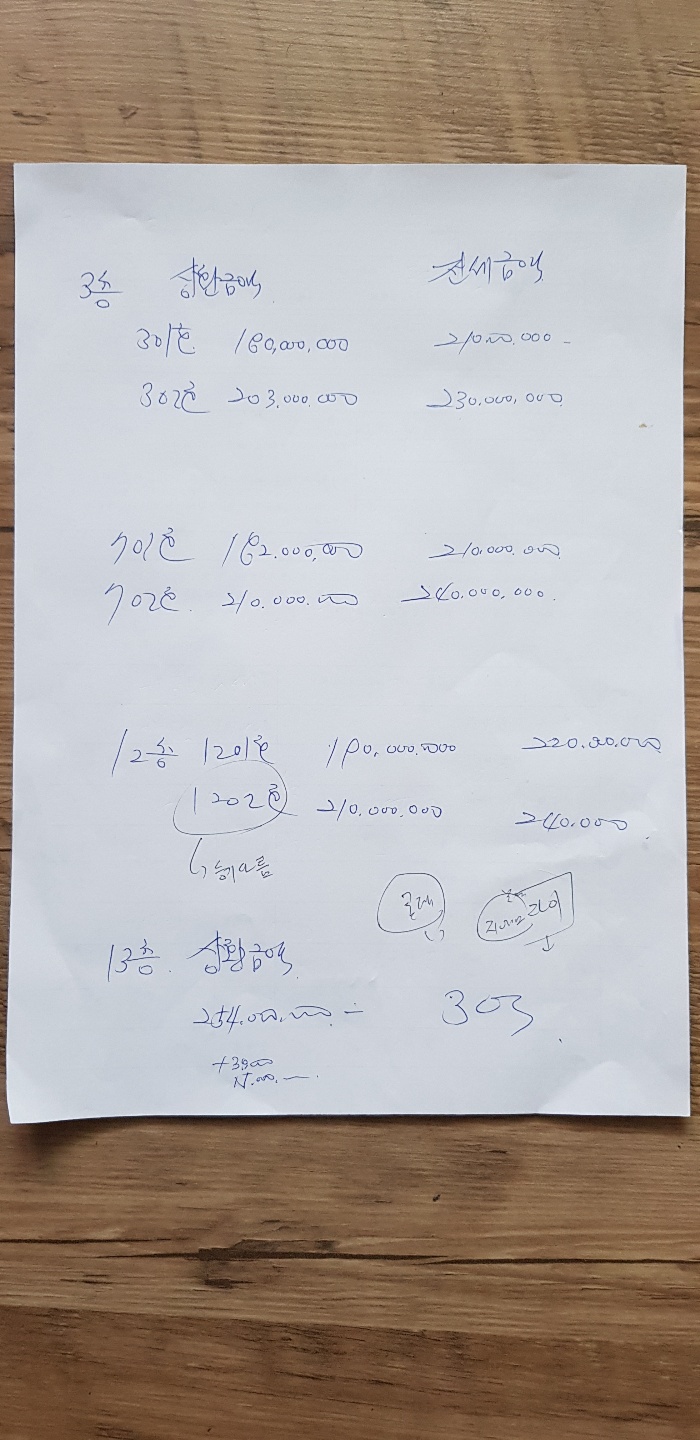 3층 상환금액 전세금액
301호 180,000,000 210.000.000 -
302호 203.000.000 230.000,000
701호 182.000,000 210.000.000
702호. 210.000.000 240.000,000.
12층 1201호 180,000.000 220.00.000
1202호 210.000.000 240.000.
13층. 상환금액
254.000.000 - 3억
+3900